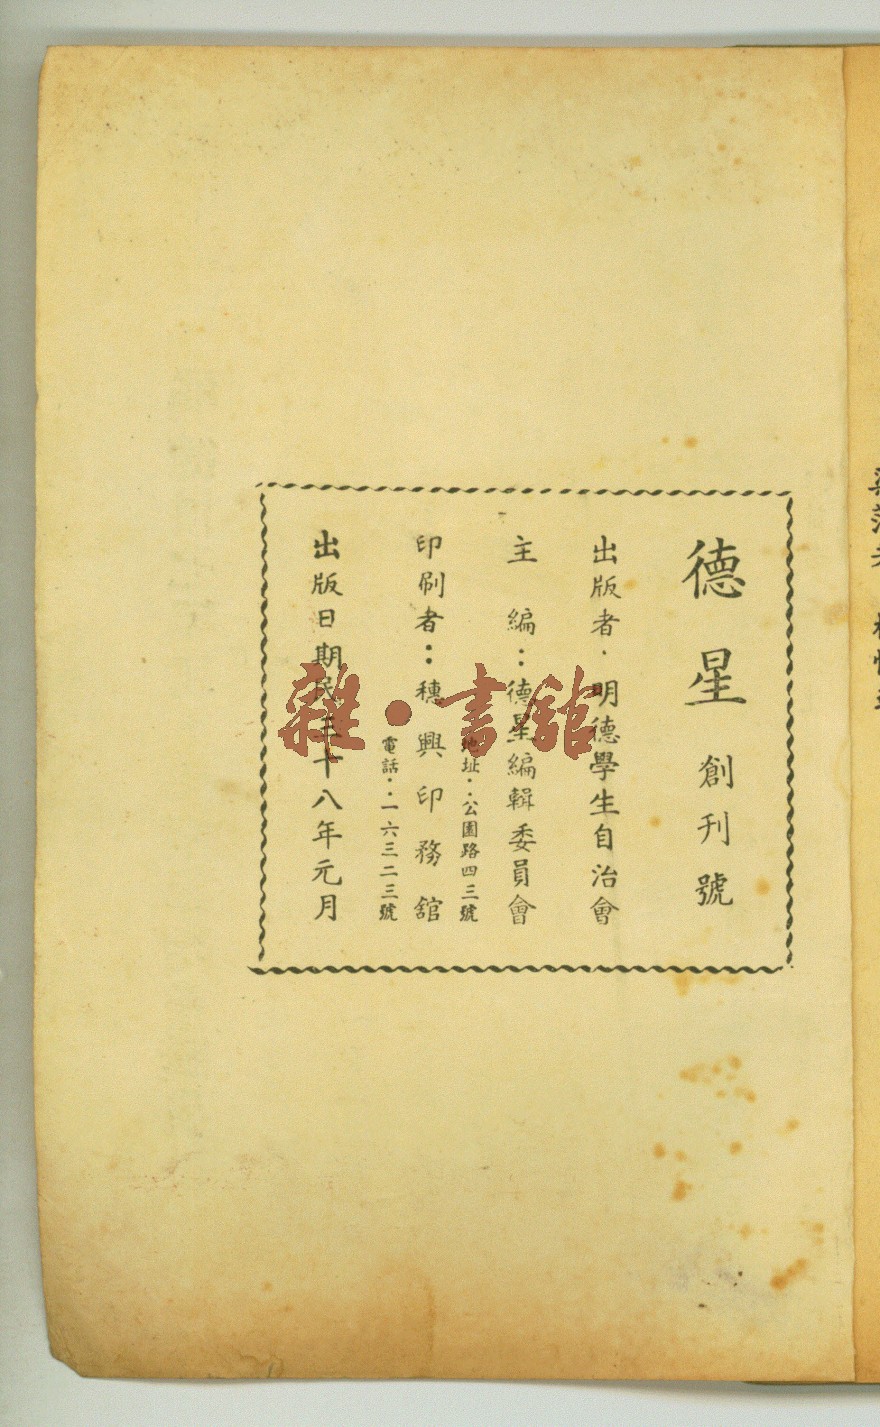 德星 創刊號
出版者．明德學生自治會
主編：德星編輯委員會
地址：公園路四三號
印刷者：穗興印務舘
電話：一六三二三號
出版日期民三十八年元月
雜·書舘